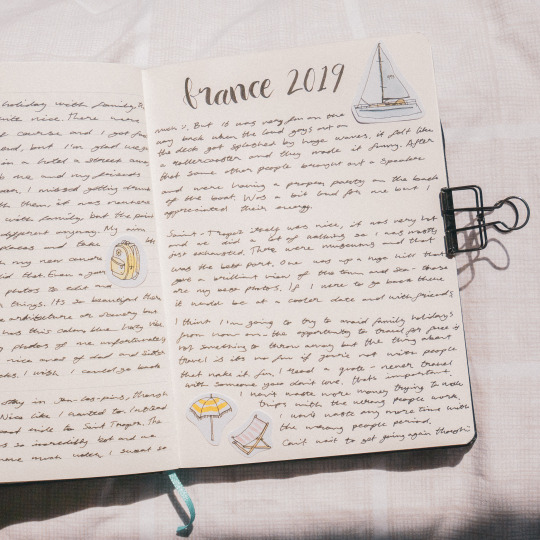 holiday with family,
quite nice. There were
of course and I got
and, but I'm glad we
in a hotel a street away
me and my friends
I missed getting drunk
with them, it was
with family, but the
different anyway. My aim
places and take
my new camera
did that. Even a
photos to edit and
things. It's so beautiful there
architecture or scenery but
has this calm blue hazy vibe
photos of me unfortunately
nice ones of dad and sister
I wish I could go back
stay in Juan-les-pins, though
Nice like I wanted to. Instead
and mile to Saint Tropez. The
so incredibly hot and we
more much water, I sweat so
france 2019
much. But it was very fun on the
way back when the loud guys out on
the deck got splashed by huge waves, it felt like
a rollercoaster and they made it funny. After
that some other people brought out a speaker
and were having a proper party on the back
of the boat. Was a bit loud for me but I
appreciated their energy.
Saint-Tropez itself was nice, it was very hot
and we did a lot of walking so I was mostly
just exhausted. There were museums and that
was the best part. One was up a high hill that
got a brilliant view of the town and sea - those
are my best photos. If I were to go back there
it would be at a cooler date and with friends
I think I'm going to try to avoid family holidays
from now on - the opportunity to travel for free is
not something to throw away but the thing about
travel is it's no fun if you're not with people
that make it fun. I read a quote - never travel
with someone you don't love. that's important.
I can't waste more money trying to make
trips with the wrong people work.
I can't waste any more time with
the wrong people period.
Can't wait to get going again though